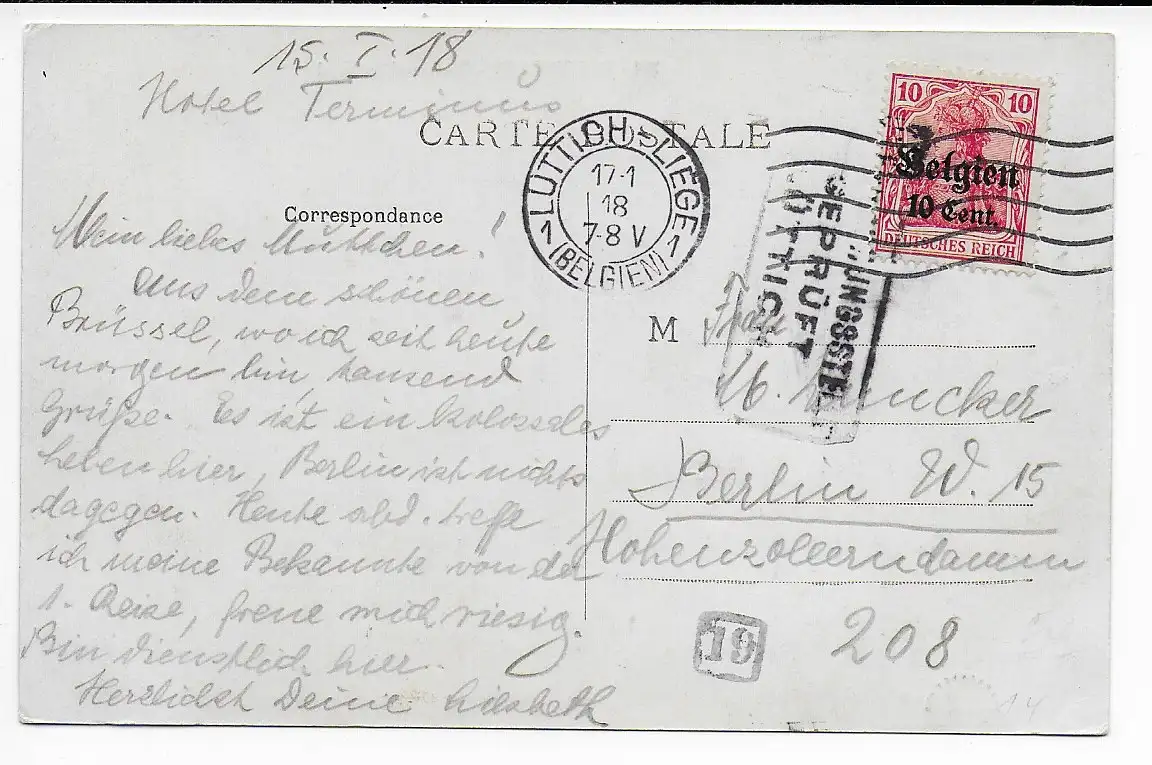 15. I. 18
Hotel Terminus
CARTE POSTALE
Correspondance
Mein liebes Muttchen!
Aus dem schönen
Brüssel, wo ich seit heute
morgen bin, tausend
Grüße. Es ist ein kolossales
Leben hier, Berlin ist nichts
dagegen. Heute abd. treffe
ich meine Bekannte von der
1. Reise, freue mich riesig.
Bin dienstlich hier.
Herzlichst Deine
LÜTTICH-LIÈGE
17-1
18
7-8 V
1 (BELGIEN) 1
10 10
Belgien
10 Cent.
DEUTSCHES REICH
GEPRÜFT
LÜTTICH
M Frau
Berlin W. 15
Hohenzollerndamm
208
19
14